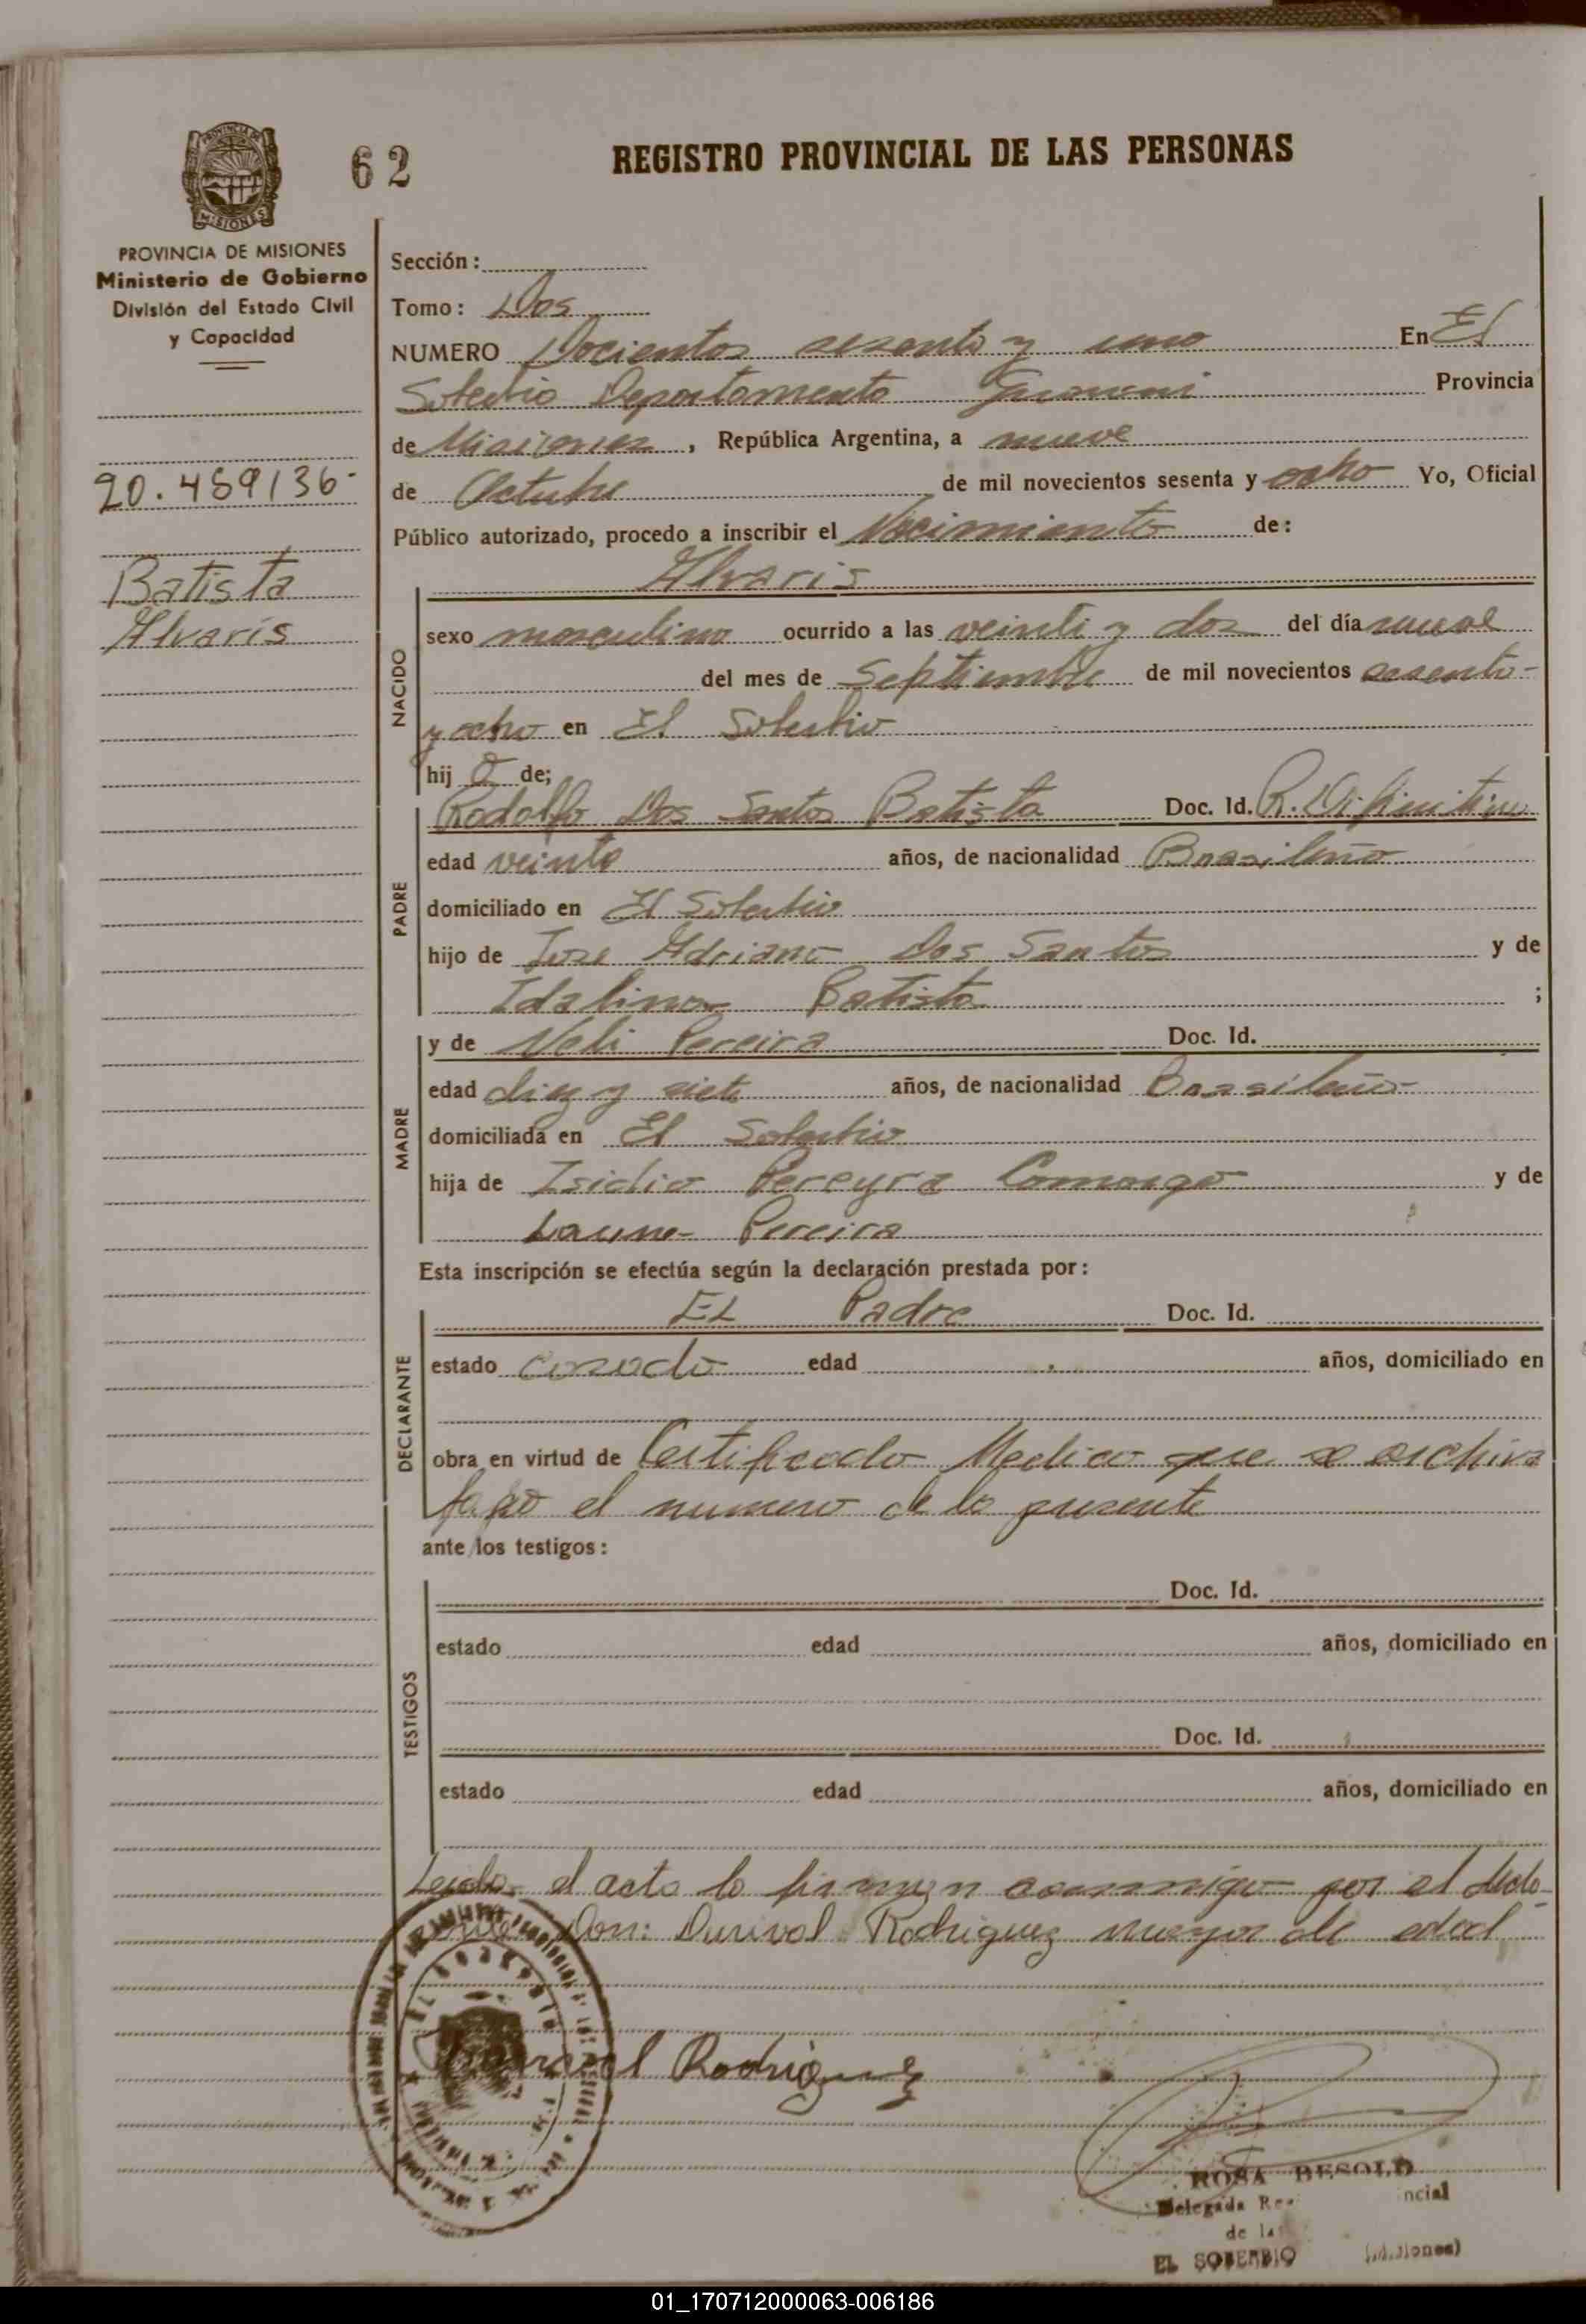 PROVINCIA DE
MISIONES
62
REGISTRO PROVINCIAL DE LAS PERSONAS
PROVINCIA DE MISIONES
Ministerio de Gobierno
División del Estado Civil
y Capacidad
20.459136-
Batista
Alvaris
Sección:
Tomo: Dos
NUMERO Docientos sesenta y uno En El
Soberbio Departamento Guarani Provincia
de Misiones, República Argentina, a nueve
de Octubre de mil novecientos sesenta y ocho Yo, Oficial
Público autorizado, procedo a inscribir el Nacimiento de:
Alvaris
NACIDO
sexo masculino ocurrido a las veinti y dos del día nueve
del mes de Septiembre de mil novecientos sesenta-
y ocho en El Soberbio
hij o de;
PADRE
Rodolfo Dos Santos Batista Doc. Id. R. Difinitivo
edad veinte años, de nacionalidad Brasileño
domiciliado en El Soberbio
hijo de Jose Adriano Dos Santos y de
Idalina Batista ;
MADRE
y de Neli Pereira Doc. Id.
edad diez y siete años, de nacionalidad Brasileña
domiciliada en El Soberbio
hija de Isidio Pereyra Camargo y de
Pereira
Esta inscripción se efectúa según la declaración prestada por:
DECLARANTE
EL Padre Doc. Id.
estado casado edad años, domiciliado en
obra en virtud de Certificado Medico que se archiva
bajo el numero de la presente
ante los testigos:
TESTIGOS
Doc. Id.
estado edad años, domiciliado en
Doc. Id.
estado edad años, domiciliado en
Leida el acta lo firman conmigo por el decla-
rante Don: Durival Rodriguez mayor de edad
Durival Rodriguez
ROSA BESOLD
Delegada
de la
EL SOBERBIO (Misiones)
01_170712000063-006186